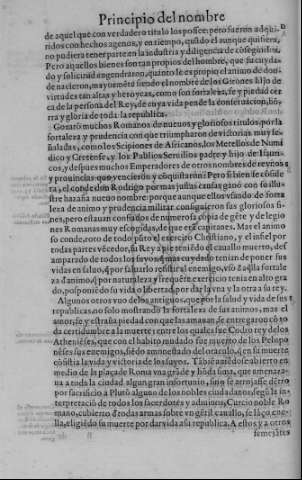 Principio del nombre
de aquel que con verdadero titulo los possee: pero fueron adqui
ridos con hechos agenos, y en tiempo, q̃uãdo el aunque quisiera,
no pudiera tener parte en la industria y diligencia de cõseguirlos.
Pero aquellos bienes son tan propios del hombre, que su cuyda-
do y solicitud engendraron, quanto le es propio el animo de don-
de nacieron, mayormẽte siendo el nombre de los Girones hijo de
virtudes tan altas y heroycas, como son fortaleza, fe y piedad cer
ca de la persona del Rey, de cuya vida pende la conseruacion, hõ-
rra y gloria de toda la republica.
Gozarõ muchos Romanos de nueuos y gloriosos titulos por la
fortaleza y prudencia con que triumpharon de victorias muy se-
ñaladas, como los Scipiones de Africanos, los Metellos de Numi
dico y Cretense, y los Publios Seruilios padre y hijo de Isauri-
cos, y despues muchos Emperadores de otros nombres de reynos
y prouincias que vencieron y cõquistaron: Pero si bien se cõside
ra, el conde don Rodrigo por mas justas causas ganó con su illu-
stre hazaña nueuo nombre: porque aunque ellos vsando de forta
leza de animo y prudencia militar consiguieron sus gloriosos fi-
nes, pero estauan confiados de numerosa copia de gẽte y de legio
nes Romanas muy escogidas, de que erã capitanes. Mas el animo
so conde, roto de todo pũto el exercito Christiano, y el infiel por
todas partes vẽcedor, su Rey a pie tendido el cauallo muerto, des
amparado de todos los suyos
das en saluo, q̃ por
za d'animo
do, posponiẽdo su vida o libertad, por dar la vna y la otra a su rey.
Algunos otros vuo de los antiguos, que por la salud y vida de sus
republicas no solo mostraron la fortaleza de sus animos, mas el
amor, fe y estraña piedad con que las amauan, se entregaron cõ to
da certidumbre a la muerte: entre los quales fue Codro rey de los
Atheniẽses, que con el habito mudado fue muerto de los Pelopo
nẽses sus enemigos, siẽdo amonestado del oraculo, q̃ en su muerte
cõsistia la vida y victoria de los suyos. Tãbiẽ auiẽdose abierto en
medio de la plaça de Roma vna grãde y hõda sima, que amenaza-
ua a toda la ciudad algun gran infortunio, sino se arrojasse dẽtro
por sacrificio a Plutõ alguno de los nobles ciudadanos, segũ la in-
terpretaciõ de todos los sacerdotes y adiuinos, Curcio noble Ro
mano, cubierto d'todas armas sobre vn gẽtil cauallo, se lãço en e-
lla, eligiẽdo su muerte por dar vida a su republica. A estos y a otros
semejãtes